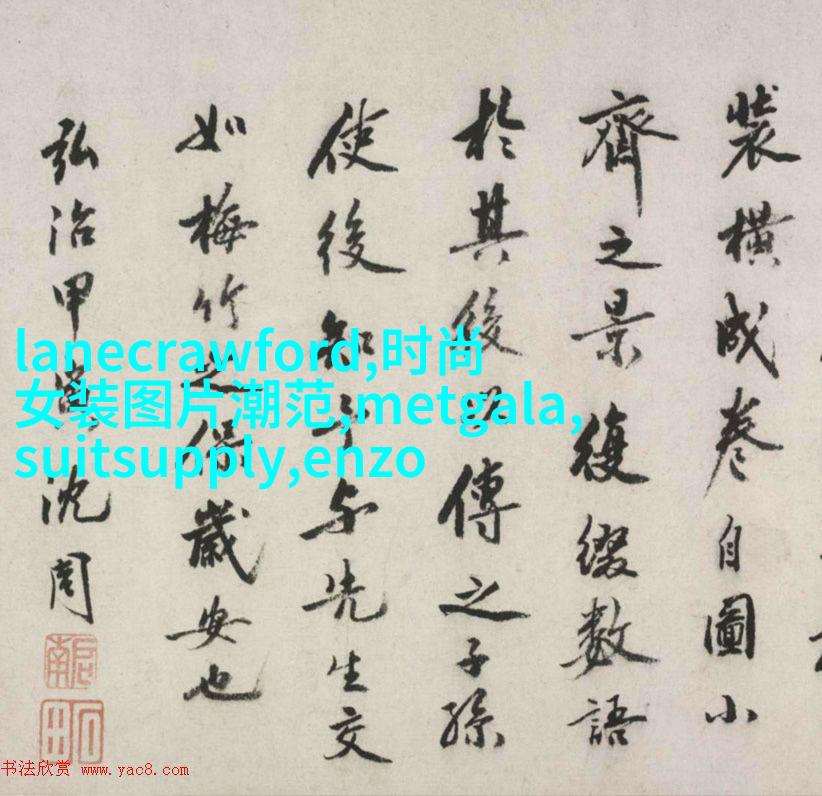 装橫成卷自圖小
齊之景復綴數語
於其後以傳之子孫
使後知予与先生交
如梅竹之保歲安也
弘治甲寅沈周
啟南
lanecrawford,时尚
女装图片潮范,metgala,
suitsupply,enzo
书法欣赏 www.yac8.com